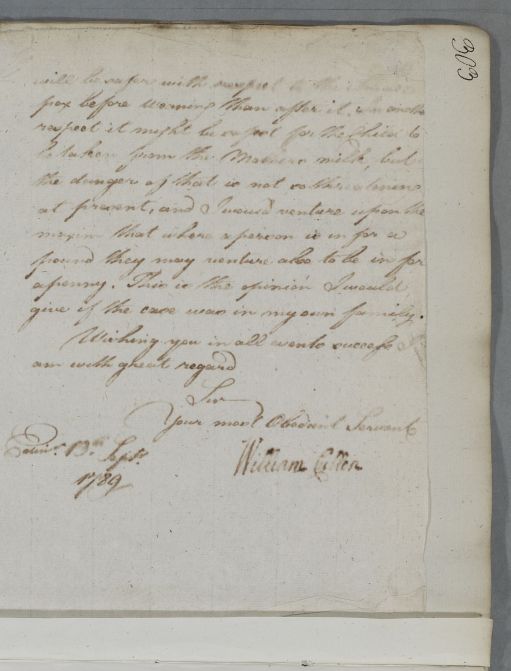 303
will be safer with respect to the
pox before weaning than after it. In another
respect it might be safest for the Child to
be taken from the Mothers milk, but
the danger of that is not so threatening
at present, and I would venture upon the
maxim that where a person is in for a
pound they may venture also to be in for
a penny. This is the opinion I would
give if the case was in my own family.
Wishing you in all events success I
am with great regard
Sir
Your most Obedient Servant
William Cullen
Edinr. 13th Septr.
1789